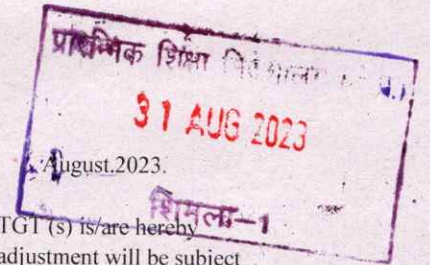 प्रारम्भिक शिक्षा
31 AUG 2023
August.2023.
शिमला-1
TGT (s) is/are hereby
adjustment will be subject